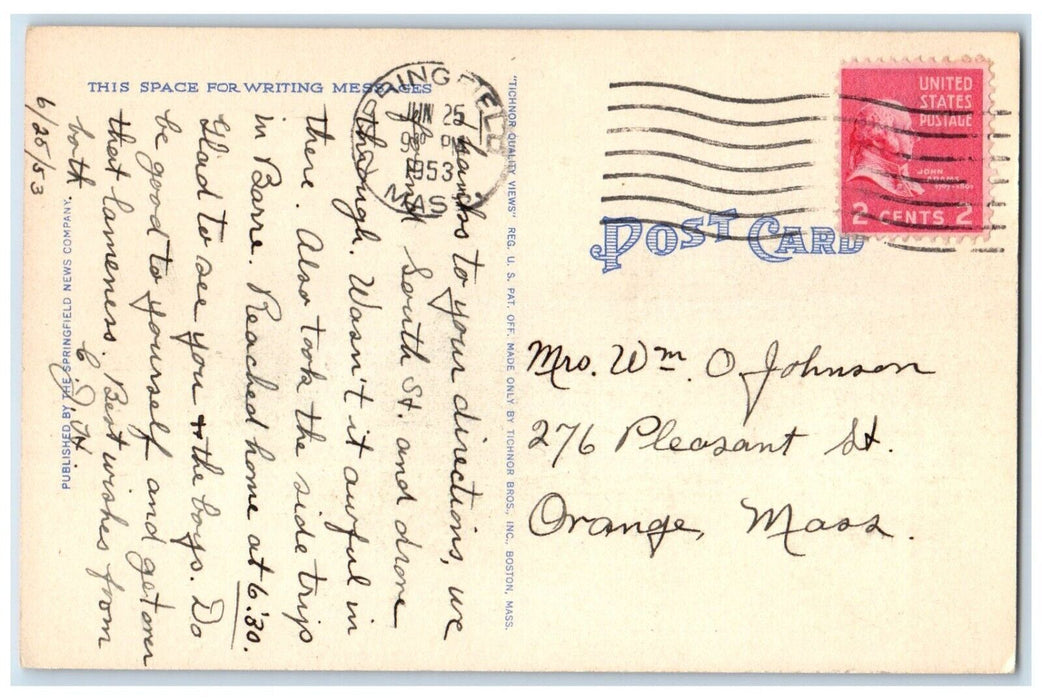 THIS SPACE FOR WRITING MESSAGES
6/25/53
Thanks to your directions, we
found South St. and drove
through. Wasn't it awful in
there. Also took the side trip
in Barre. Reached home at 6:30.
Glad to see you + the boys. Do
be good to yourself and get over
that lameness. Best wishes from
both.
PUBLISHED BY THE SPRINGFIELD NEWS COMPANY.
"TICHNOR QUALITY VIEWS" REG. U. S. PAT. OFF. MADE ONLY BY TICHNOR BROS., INC., BOSTON, MASS.
JUN 25
PM
1953
MASS
UNITED
STATES
POSTAGE
JOHN
ADAMS
1797-1801
2 CENTS 2
POST CARD
Mrs. Wm. O. Johnson
276 Pleasant St.
Orange, Mass.